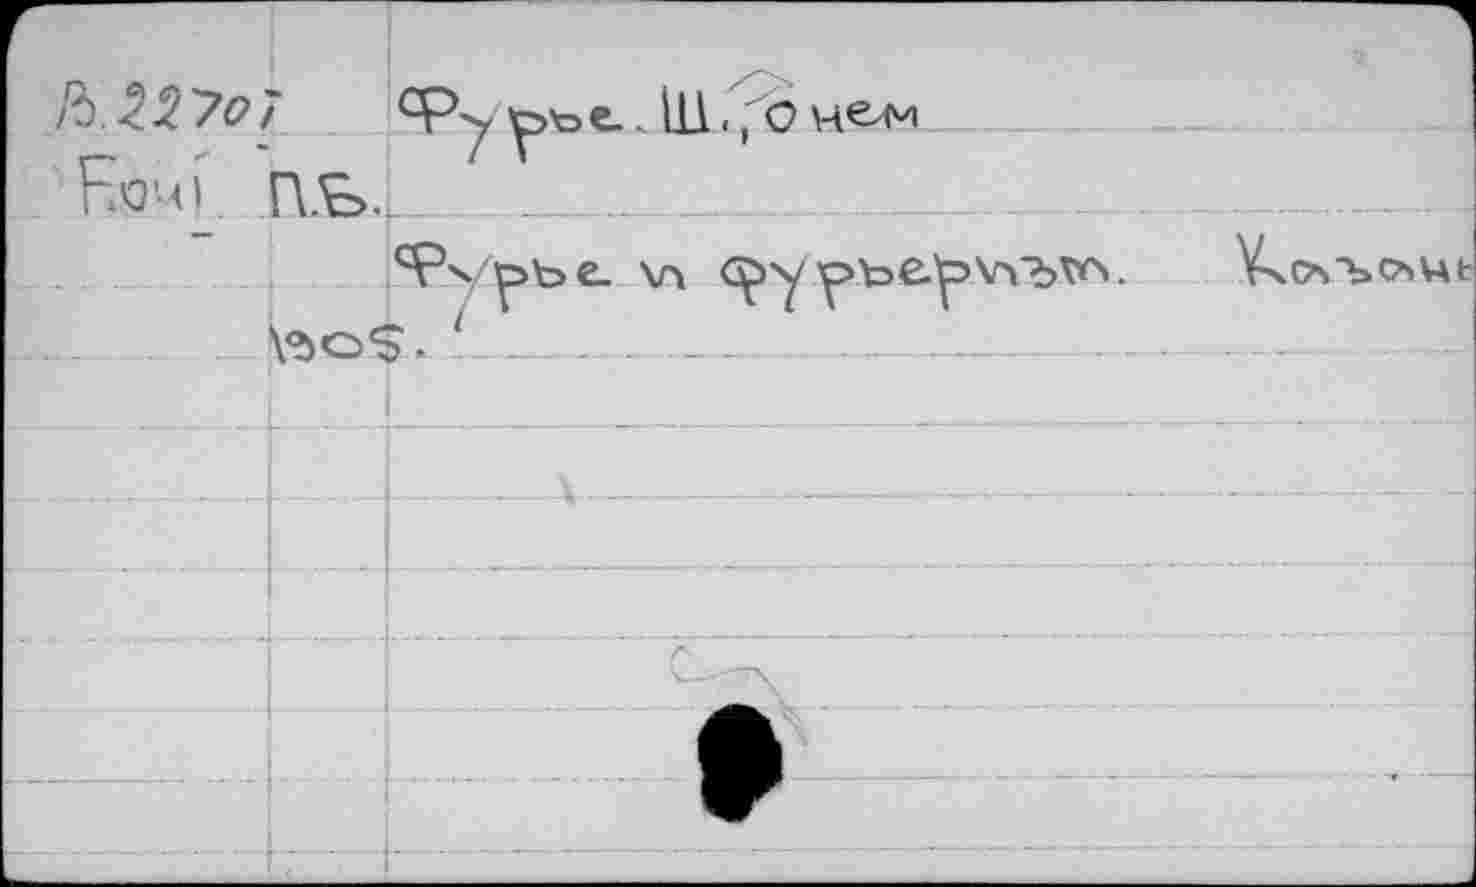 В.22707 Фурье. Ш., о нем
П.Б.
Фурье и фурьеризм. Казань
1905.